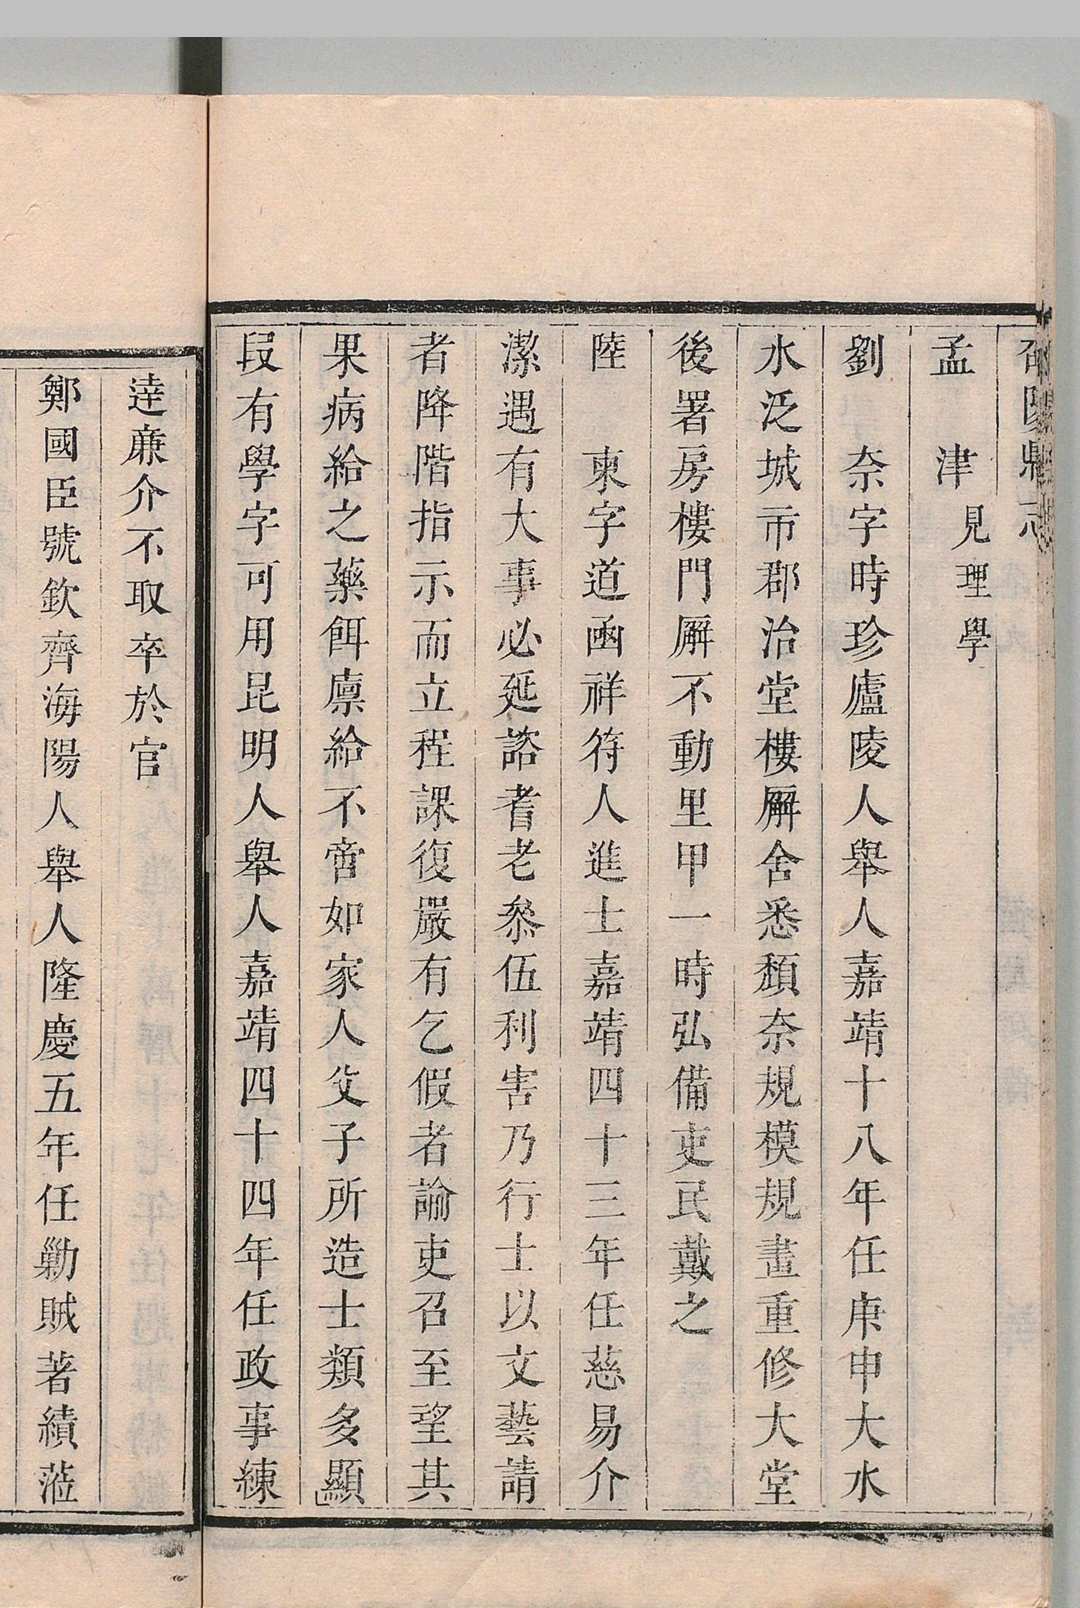 陽縣志
孟　津見理學
劉　奈字時珍廬陵人舉人嘉靖十八年任庚申大水
水泛城市郡治堂樓廨舍悉頹奈規模規畫重修大堂
後署房樓門廨不動里甲一時弘備吏民戴之
陸　柬字道函祥符人進士嘉靖四十三年任慈易介
潔遇有大事必延諮耆老叅伍利害乃行士以文藝請
者降階指示而立程課復嚴有乞假者諭吏召至望其
果病給之藥餌廪給不啻如家人父子所造士類多顯
叚有學字可用昆明人舉人嘉靖四十四年任政事練
達亷介不取卒於官
鄭國臣號欽齊海陽人舉人隆慶五年任勦賊著績蒞